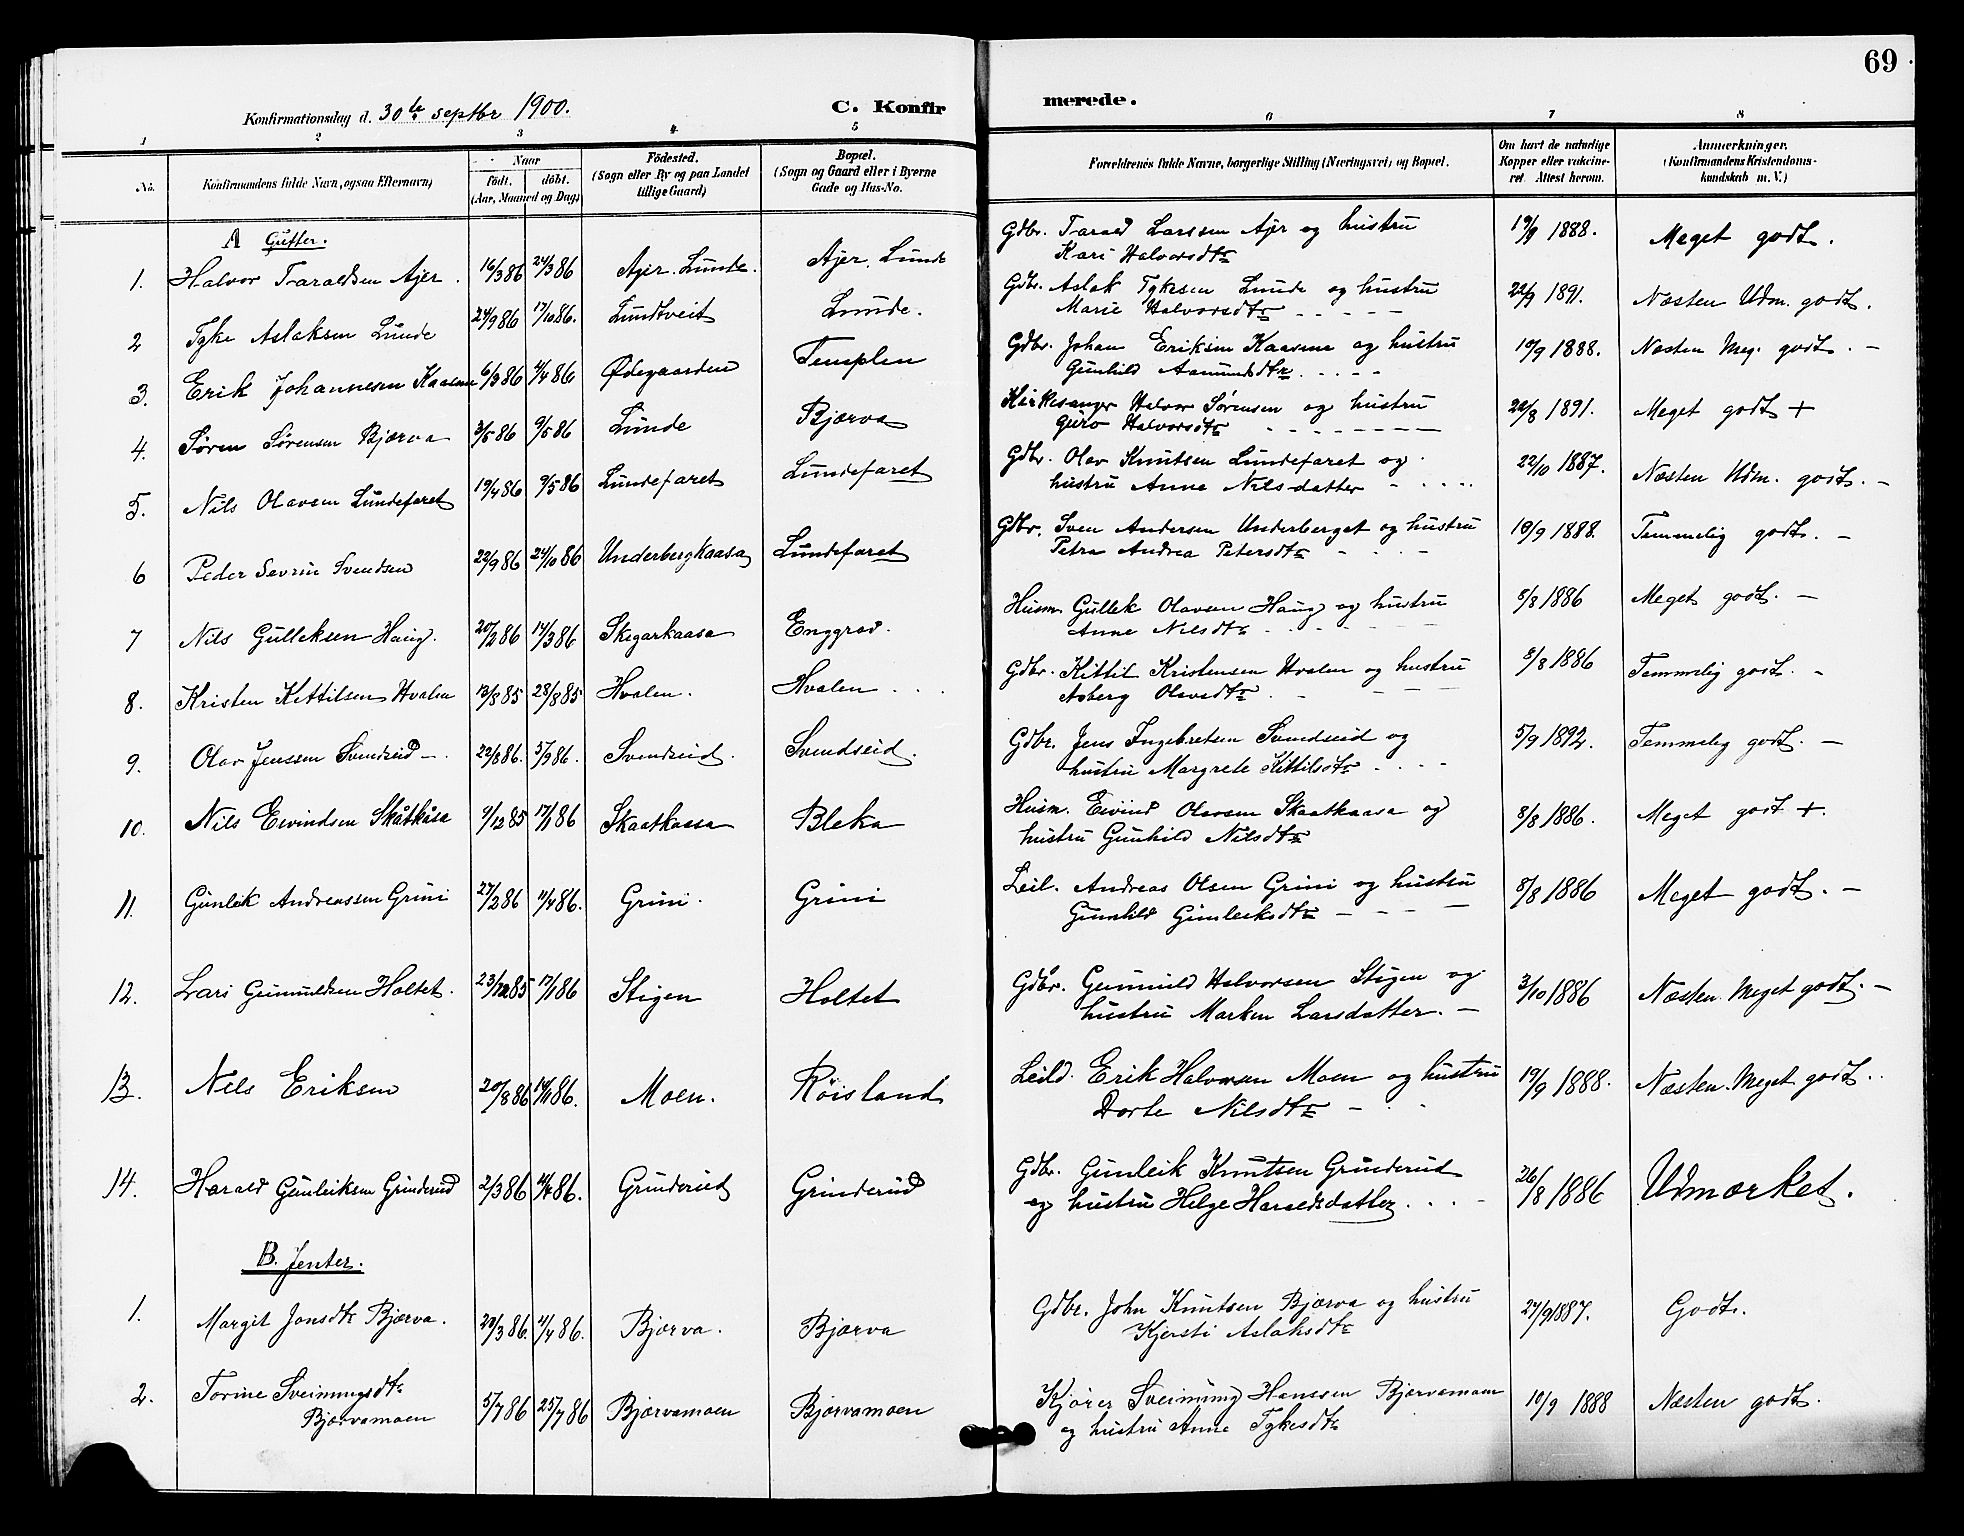 69
Konfirmationsdag d. 30te septbr 1900.
C. Konfirmerede.
1 2 3 4 5 6 7 8
No.
Konfirmandens fulde Navn, ogsaa Efternavn)
Naar
födt. döbt.
(Aar, Maaned og Dag)
Födested.
(Sogn eller By og paa Landet
tillige Gaard)
Bopæl.
(Sogn og Gaard eller i Byerne
Gade og Hus-No.
Forældrenes fulde Navne, borgerlige Stilling (Næringsvei) og Bopæl.
Om havt de naturlige
Kopper eller vaccine-
ret Attest herom.
Anmærkninger.
(Konfirmandens Kristendoms-
kundskab m. V.)
A Gutter.
1. Halvor Taraldsen Ajer. 16/3 86 24/3 86 Ajer. Lunde. Ajer. Lunde Gdbr. Tarald Larssen Ajer og hustru
Kari Halvorsdtr 19/9 1888. Meget godt.
2 Tyke Aslaksen Lunde 24/9 86 17/10 86. Lundtveit Lunde. Gdbr. Aslak Tykesen Lunde og hustru
Marie Halvorsdtr - - - - - 22/9 1891. Næsten Udm. godt.
3. Erik Johannesen Kaasene 6/3 86 4/4 86 Ødegaarden Templen Gdbr. Johan Eriksen Kaasene og hustru
Gunhild Aamundsdtr. - - - - 19/9 1888. Næsten Meg. godt. -
4. Søren Sørensen Bjærva 3/5 86 9/5 86 Lunde Bjærva Kirkesanger Halvor Sørensen og hustru
Guro Halvorsdtr - - - - - - - - 22/8 1891. Meget godt +
5. Nils Olavsen Lundefaret 19/4 86 9/5 86 Lundefaret Lundefaret Gdbr. Olav Knutsen Lundefaret og
hustru Anne Nilsdatter - - - - 22/10 1887. Næsten Udm. godt. -
6 Peder Sevrin Svendsen 22/9 86 24/10 86 Underbergkaasa Lundefaret Gdbr. Sven Andersen Underberget og hustru
Petra Andrea Petersdtr - - - - 19/9 1888. Temmelig godt. -
7 Nils Gulleksen Haug. 20/2 86 14/3 86 Skegarkaasa Enggrav. Husm. Gullek Olavsen Haug og hustru
Anne Nilsdtr - - - - - 8/8 1886 Meget godt. -
8. Kristen Kittilsen Hvalen 13/8 85 23/8 85 Hvalen. Hvalen Gdbr. Kittil Kristensen Hvalen og hustru
Asberg Olavsdtr. - - - - 8/8 1886 Temmelig godt. -
9. Olav Jenssen Svendseid -. 22/8 86. 5/9 86. Svendseid. Svendseid. Gdbr. Jens Ingebretsen Svendseid og
hustru Margrete Kittilsdtr - - - - 5/9 1892. Temmelig godt. -
10. Nils Eivindsen Skåtkåsa 9/12 85 17/1 86 Skaatkaasa Bleka Husm. Eivind Olavsen Skaatkaasa og
hustru Gunhild Nilsdtr 8/8 1886. Meget godt +.
11. Gunleik Andreassen Grini 27/2 86 11/4 86. Grini. Grini Leil. Andreas Olsen Grini og hustru
Gunhild Gunleiksdtr - - - - 8/8 1886 Meget godt. -
12. Lars Gunnuldsen Holtet. 23/12 85 17/1 86 Stigen Holtet Gdbr. Gunnuld Halvorsen Stigen og
hustru Marken Larsdatter. - 3/10 1886 Næsten Meget godt. -
13. Nels Eriksen 20/8 86 14/11 86. Moen. Röisland Leild. Erik Halvorsen Moen og hustru
Dorte Nilsdtr - - - 19/9 1888. Næsten Meget godt..
14. Harald Gunleiksen Grinderud 2/3 86 11/4 86. Grinderud Grinderud Gdbr. Gunleik Knutsen Grinderud
og hustru Helge Haraldsdatter. . . - 26/8 1886 Udmærket.
B. Jenter.
1. Margit Jonsdtr Bjærva. 28/3 86. 11/4 86. Bjærva. Bjærva Gdbr. John Knutsen Bjærva og hustru
Kjersti Aslaksdtr 27/9 1887. Godt.
2. Torine Sveinungsdtr
Bjærvamoen 5/7 86 25/7 86 Bjærvamoen Bjærvamoen Kjører Sveinung Hanssen Bjærvamoen
og hustru Anne Tykesdtr 10/9 1888 Næsten godt.